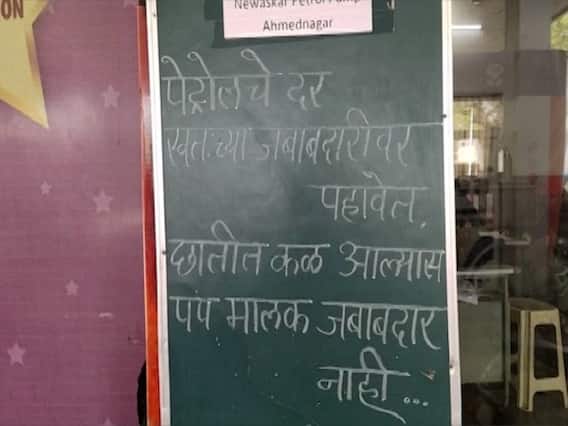 ON
Newaskar Petrol Pump
Ahmednagar
पेट्रोलचे दर
स्वतःच्या जबाबदारीवर
पहावेत.
छातीत कळ आल्यास
पंप मालक जबाबदार
नाही ...